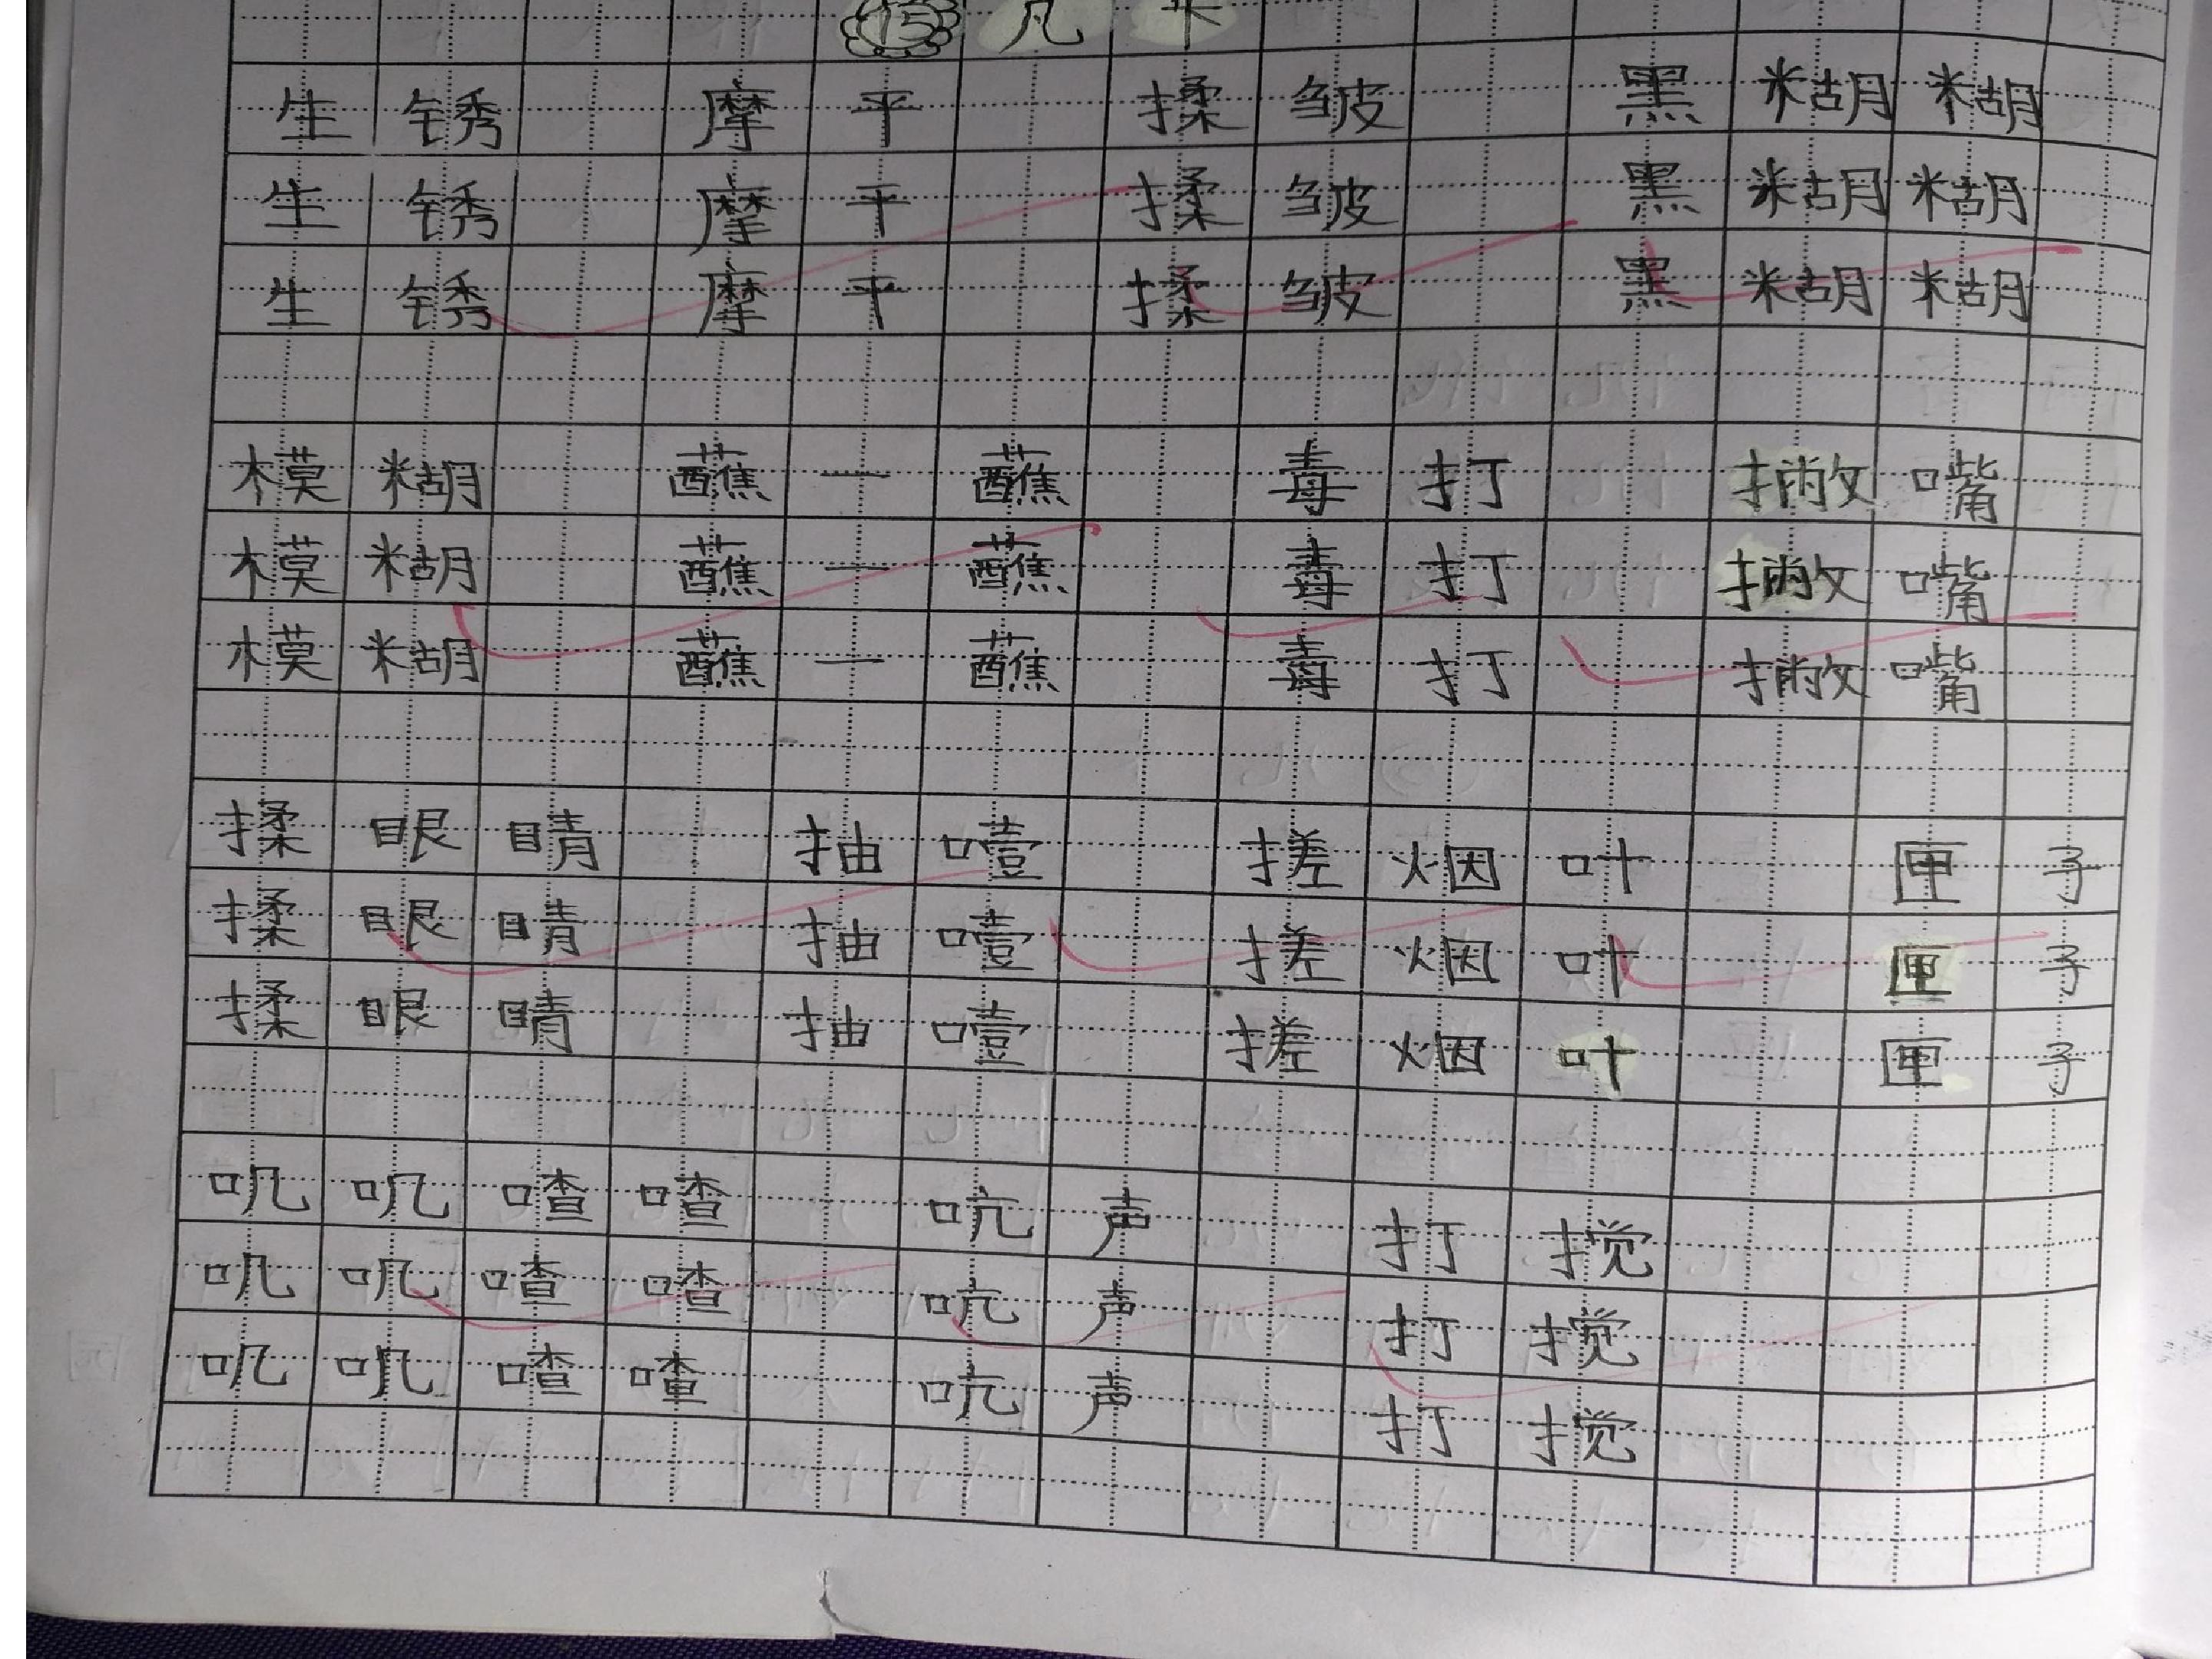 15 凡 卡
生锈 摩平 揉皱 黑糊糊
生锈 摩平 揉皱 黑糊糊
生锈 摩平 揉皱 黑糊糊
模糊 蘸一蘸 毒打 撇嘴
模糊 蘸一蘸 毒打 撇嘴
模糊 蘸一蘸 毒打 撇嘴
揉眼睛 抽噎 搓烟叶 匣子
揉眼睛 抽噎 搓烟叶 匣子
揉眼睛 抽噎 搓烟叶 匣子
叽叽喳喳 吭声 打搅
叽叽喳喳 吭声 打搅
叽叽喳喳 吭声 打搅